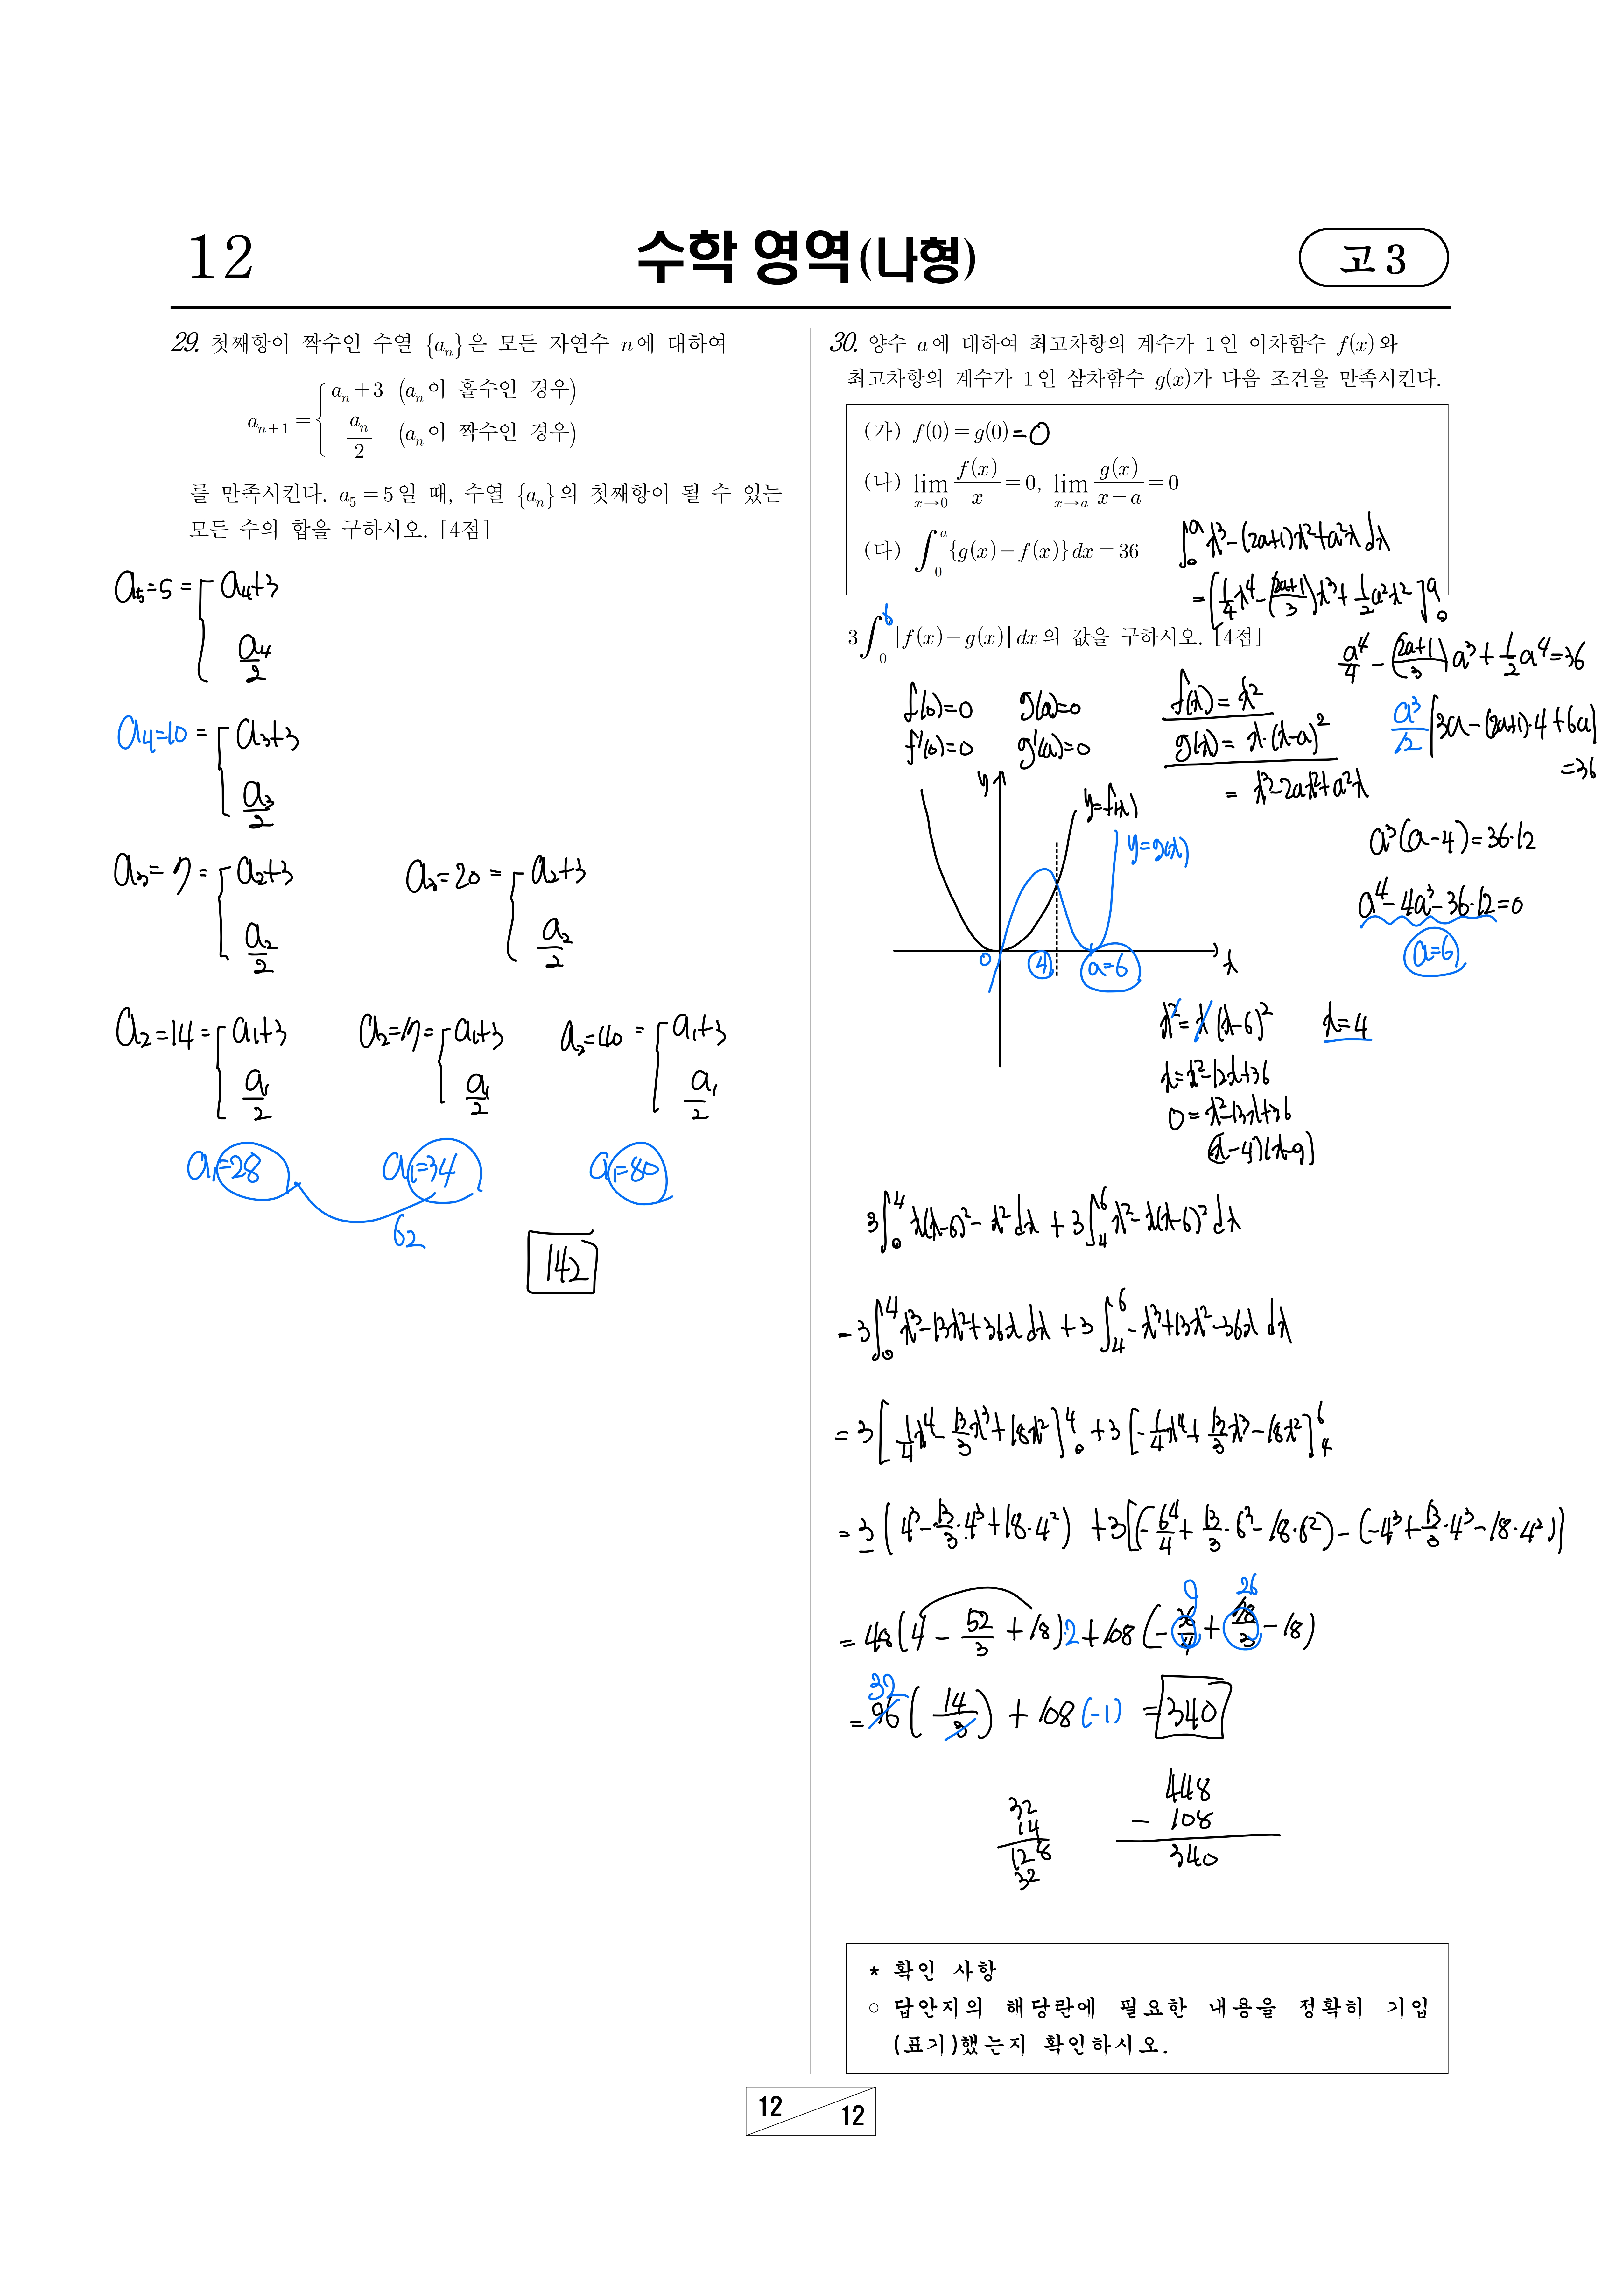 12
수학 영역(나형)
고 3
29. 첫째항이 짝수인 수열 {aₙ}은 모든 자연수 n에 대하여
aₙ₊₁ = { aₙ+3 (aₙ이 홀수인 경우)
aₙ/2 (aₙ이 짝수인 경우)
를 만족시킨다. a₅=5일 때, 수열 {aₙ}의 첫째항이 될 수 있는
모든 수의 합을 구하시오. [4점]
a₅=5= { a₄+3
a₄/2
a₄=10 = { a₃+3
a₃/2
a₃=7= { a₂+3
a₂/2
a₃=20 = { a₂+3
a₂/2
a₂=14= { a₁+3
a₁/2
a₂=17= { a₁+3
a₁/2
a₂=40 = { a₁+3
a₁/2
a₁=28
a₁=34
a₁=80
62
142
30. 양수 a에 대하여 최고차항의 계수가 1인 이차함수 f(x)와
최고차항의 계수가 1인 삼차함수 g(x)가 다음 조건을 만족시킨다.
(가) f(0)=g(0)=0
(나) lim x→0 f(x)/x=0, lim x→a g(x)/(x-a)=0
(다) ∫₀ᵃ{g(x)-f(x)}dx=36
∫₀ᵃ x³-(2a+1)x²+a²x dx
=[1/4 x⁴-(2a+1/3)x³+1/2 a²x²]₀ᵃ
3∫₀⁶|f(x)-g(x)|dx의 값을 구하시오. [4점]
a⁴/4-(2a+1/3)a³+1/2 a⁴=36
a³/12[3a-(2a+1)·4+6a]
=36
a³(a-4)=36·12
a⁴-4a³-36·12=0
a=6
f(0)=0 g(a)=0
f'(0)=0 g'(a)=0
f(x)=x²
g(x)=x·(x-a)²
= x³-2ax²+a²x
y
y=f(x)
y=g(x)
0
4
a=6
x
x²=x(x-6)² x=4
x=x²-12x+36
0=x²-13x+36
(x-4)(x-9)
3∫₀⁴ x(x-6)²-x² dx + 3∫₄⁶ x²-x(x-6)² dx
=3∫₀⁴ x³-13x²+36x dx + 3∫₄⁶ -x³+13x²-36x dx
=3[1/4 x⁴-13/3 x³+18x²]₀⁴+3[-1/4 x⁴+13/3 x³-18x²]₄⁶
=3(4³-13/3·4³+18·4²)+3[(-6⁴/4+13/3·6³-18·6²)-(-4³+13/3·4³-18·4²)]
9 26
=48(4-52/3+18)·2+108(-36/4+78/3-18)
32
=96(14/3)+108(-1) =340
32
14
128
32
448
- 108
340
* 확인 사항
○ 답안지의 해당란에 필요한 내용을 정확히 기입
(표기)했는지 확인하시오.
12
12